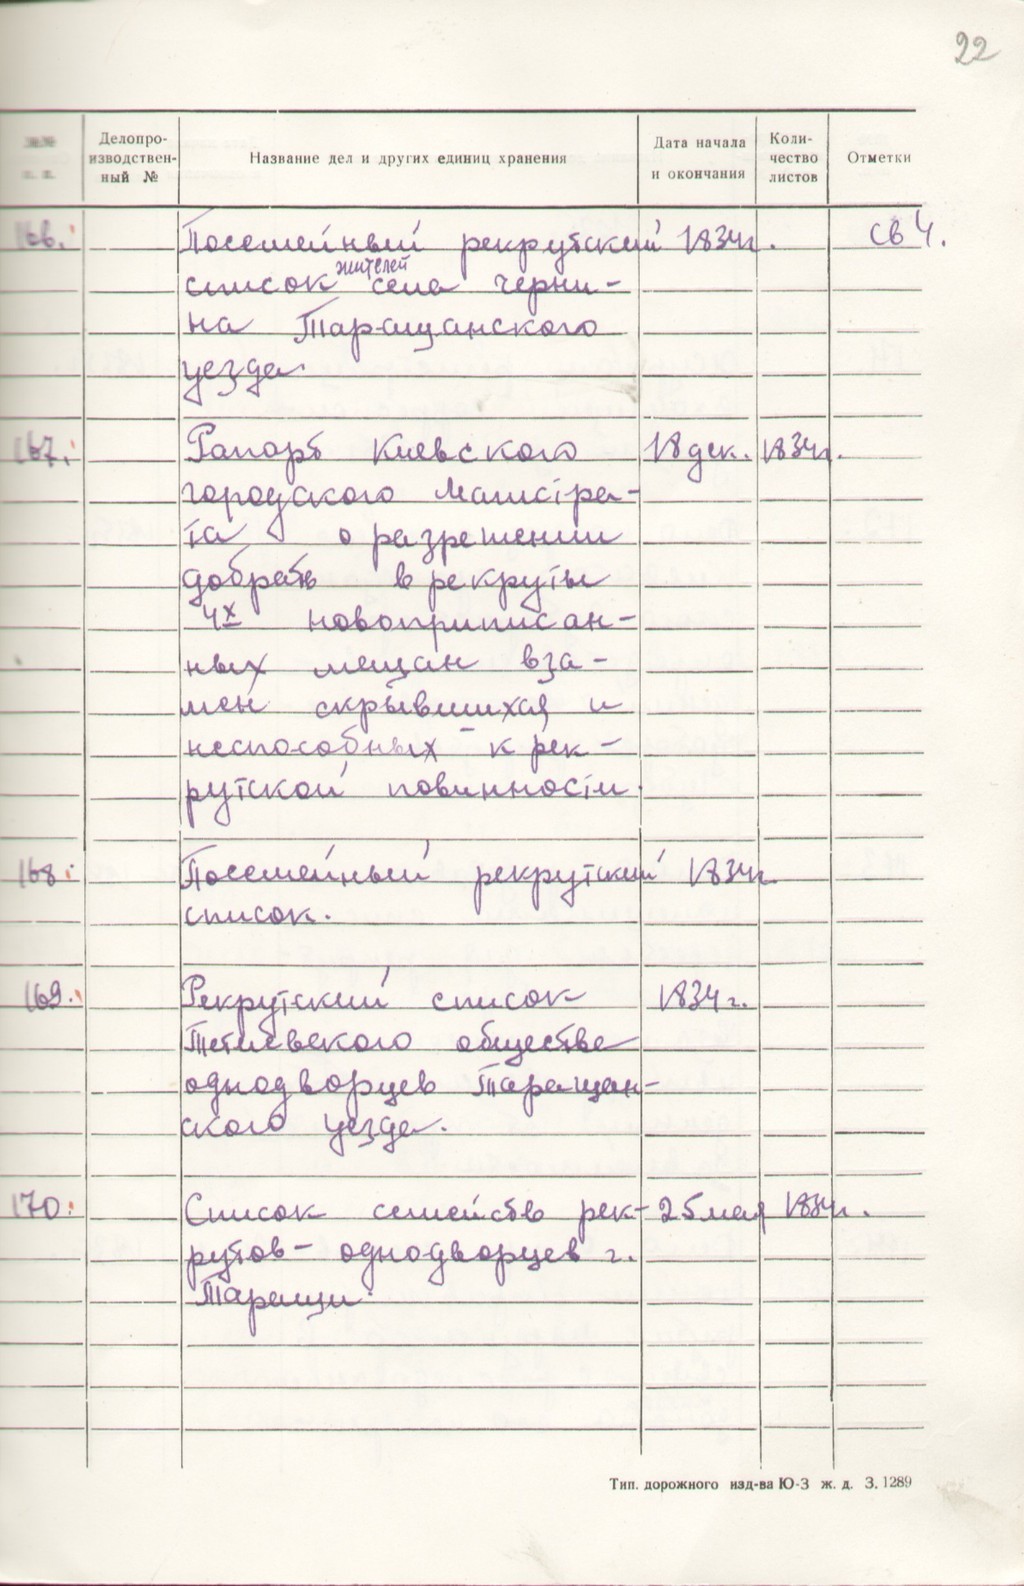 22
Делопро-
изводствен-
ный №
Название дел и других единиц хранения
Дата начала
и окончания
Коли-
чество
листов
Отметки
166. Посемейный рекрутский 1834г. св 4.
список жителей села черни-
на Таращанского
уезда.
167. Рапорт Киевского 18 дек. 1834г.
городского магистра-
та о разрешении
добрать в рекруты
4х новоприписан-
ных мещан вза-
мен скрывшихся и
неспособных к рек-
рутской повинности.
168. Посемейный рекрутский 1834г.
список.
169. Рекрутский список 1834 г.
Тетиевского общества
однодворцев Таращан-
ского уезда.
170. Список семейств рек- 25 мая 1834г.
рутов-однодворцев г.
Таращи.
Тип. дорожного изд-ва Ю-З ж. д. З. 1289